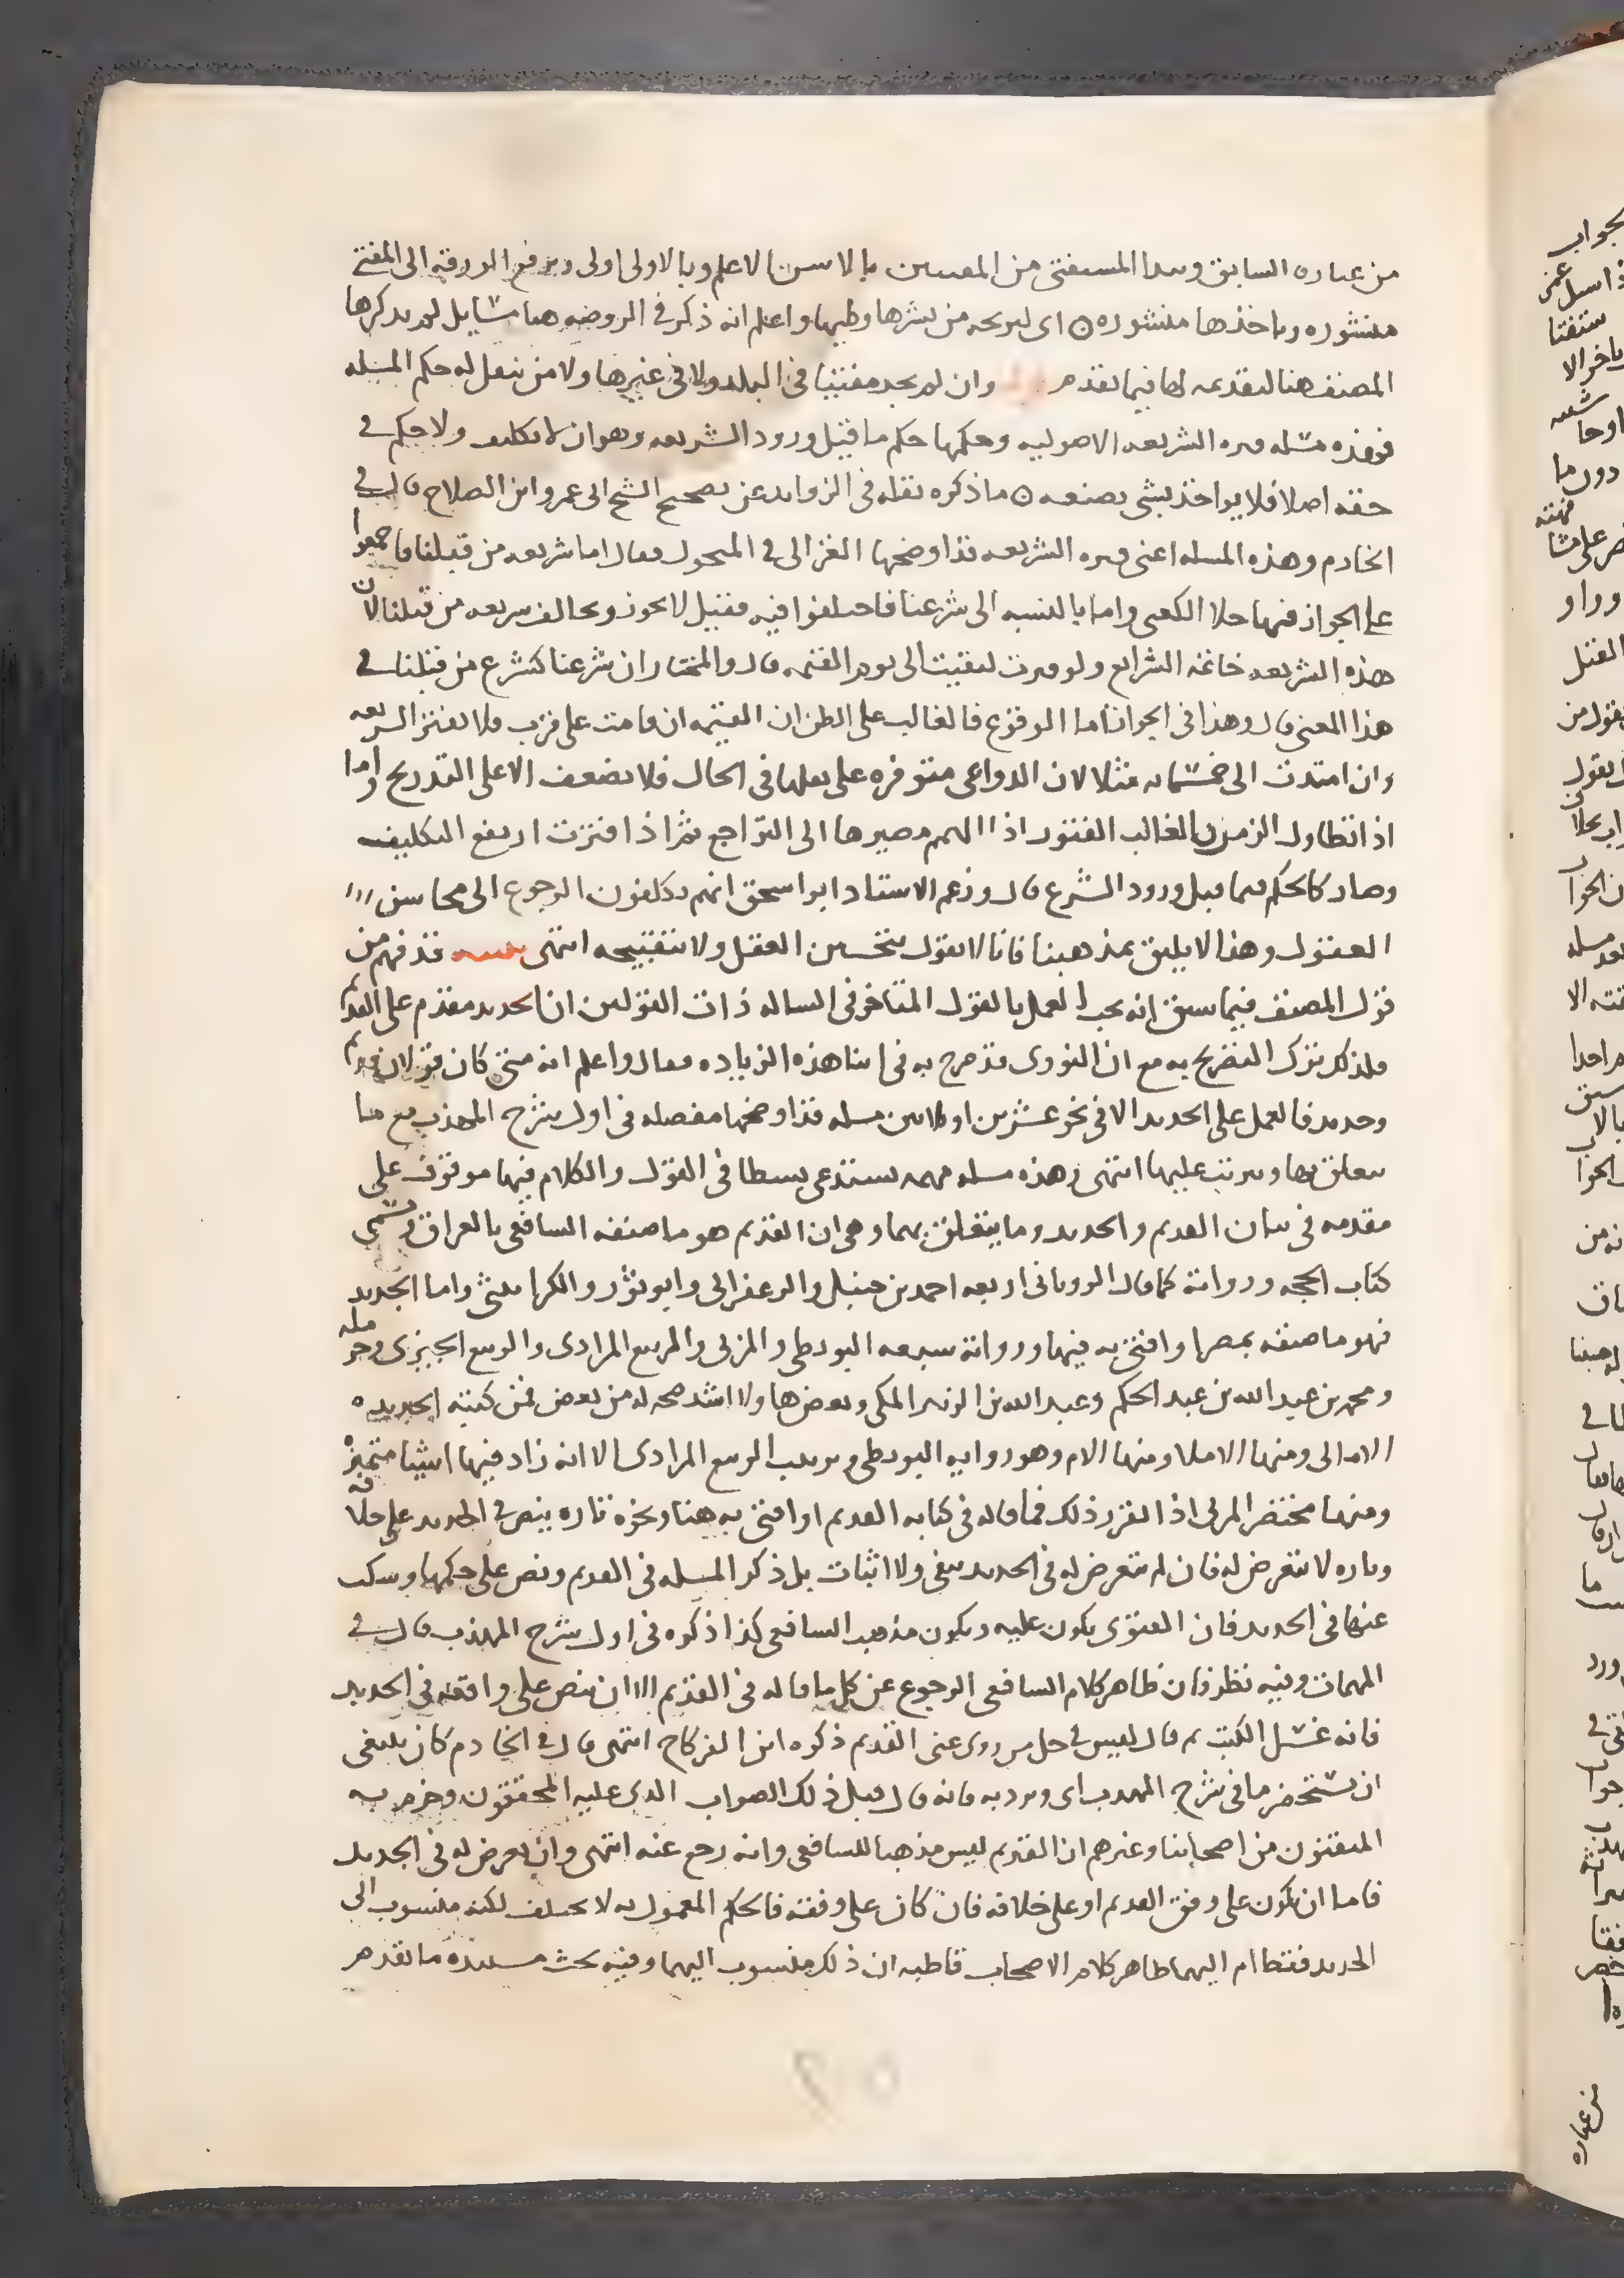 من عباره السابق ويبدا المستفتى من المفتيين بالاسن الاعلم وبالاولى اولى ويرفع الورقه الى المفتى
منشوره وياخذها منشوره ای ليريحه من نشرها وطيها واعلم انه ذكر في الروضه هنا مسايل لم يذكرها
المصنف هنا لتقدمه لها فيما تقدم وان لم يجد مفتيا في البلد ولا في غيرها ولا من ينقل له حكم المسله
فهذه مسله فتره الشريعه الاصوليه وحكمها حكم ما قبل ورود الشريعه وهو ان لا تكليف ولا حكم في
حقه اصلا فلا يواخذ بشى يصنعه ما ذكره نقله في الزوايد عن تصحيح الشيخ ابى عمرو ابن الصلاح قال في
الخادم وهذه المسله اعنى فتره الشريعه قد اوضحها الغزالى في المنحول فقال اما شريعه من قبلنا فاجمعوا
على الجواز فيها خلا الكعبى واما بالنسبه الى شرعنا فاختلفوا فيه فقيل لا يجوز ويخالف شريعه من قبلنا لان
هذه الشريعه خاتمة الشرايع ولو فترت لبقيت الى يوم القيمه قال والمختار ان شرعنا كشرع من قبلنا في
هذا المعنى قال وهذا في الجواز اما الوقوع فالغالب على الظن ان القيمه ان قامت على قرب فلا تفتر الشريعه
وان امتدت الى خمسمايه مثلا لان الدواعى متوفره على نقلها في الحال فلا تضعف الا على التدريج واما
اذا تطاول الزمن فالغالب الفتور اذ الهمم مصيرها الى التراجع ثم اذا فترت ارتفع التكليف
وصار كالحكم فيما قبل ورود الشرع قال وزعم الاستاد ابو اسحق انهم يكلفون الرجوع الى محاسن
العقول وهذا لا يليق بمذهبنا فانا لا نقول بتحسين العقل ولا بتقبيحه انتهى تنبيه قد فهم من
قول المصنف فيما سبق انه يجب العمل بالقول المتاخر في المساله ذات القولين ان الجديد مقدم على القديم
فلذلك ترك التصريح به مع ان النووى قد صرح به في اثنا هذه الزياده فقال واعلم انه متى كان قولان قديم
وجديد فالعمل على الجديد الا في نحو عشرين او ثلاثين مسله قد اوضحتها مفصله في اول شرح المهذب مع ما
يتعلق بها ويترتب عليها انتهى وهذه مسله مهمه تستدعى بسطا في القول والكلام فيها موقوف على
مقدمه في بيان القديم والجديد وما يتعلق بهما وهى ان القديم هو ما صنفه الشافعى بالعراق ويسمى
كتاب الحجه ورواته كما قال الرويانى اربعه احمد بن حنبل والزعفرانى وابو ثور والكرابيسى واما الجديد
فهو ما صنفه بمصر او افتى به فيها ورواته سبعه البويطى والمزنى والربيع المرادى والربيع الجيزى وحرمله
ومحمد بن عبد الله بن عبد الحكم وعبد الله بن الزبير المكى وبعضها ولا اشد صحه له من بعض فمن كتبه الجديده
الامالى ومنها الاملا ومنها الام وهو روايه البويطى وترتيب الربيع المرادى الا انه زاد فيها اشيا متميزه
ومنها مختصر المزنى اذا تقرر ذلك فما قاله في كتابه القديم او افتى به هنا ونحوه تاره ينص في الجديد على خلافه
وتاره لا يتعرض له فان لم يتعرض له في الجديد بنفى ولا اثبات بل ذكر المسله في القديم ونص على حكمها وسكت
عنها في الجديد فان الفتوى يكون عليه ويكون مذهب الشافعى كذا ذكره في اول شرح المهذب قال في
المهمات وفيه نظر فان ظاهر كلام الشافعى الرجوع عن كل ما قاله في القديم الا ان ينص على وافقه في الجديد
فانه غسل الكتب ثم قال ليس في حل من روى عنى القديم ذكره ابن الفركاح انتهى قال في الخادم كان ينبغى
ان يستحضر ما في شرح المهذب اى ويرد به فانه قال قبل ذلك الصواب الذى عليه المحققون وجزم به
المتقنون من اصحابنا وغيرهم ان القديم ليس مذهبا للشافعى وانه رجع عنه انتهى وان تعرض له في الجديد
فاما ان يكون على وفق القديم او على خلافه فان كان على وفقه فالحكم المعمول به لا يختلف لكنه منسوب الى
الجديد فقط ام اليهما ظاهر كلام الاصحاب قاطبه ان ذلك منسوب اليهما وفيه بحث مستنده ما تقدم